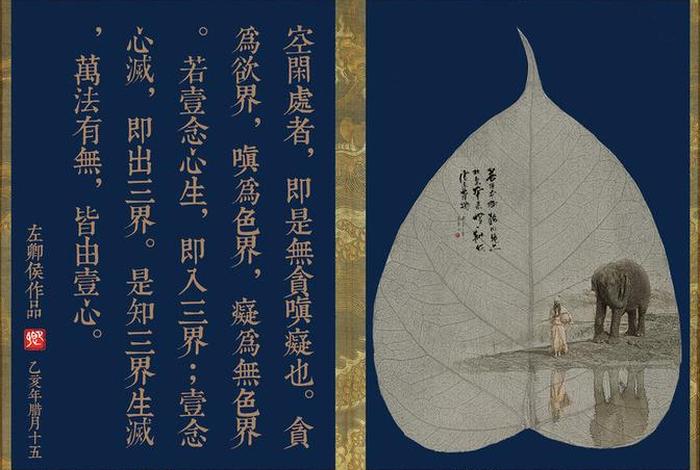 空閑處者，即是無貪嗔癡也。貪
爲欲界，嗔爲色界，癡爲無色界
。若壹念心生，即入三界；壹念
心滅，即出三界。是知三界生滅
，萬法有無，皆由壹心。
左卿侯作品
乙亥年腊月十五